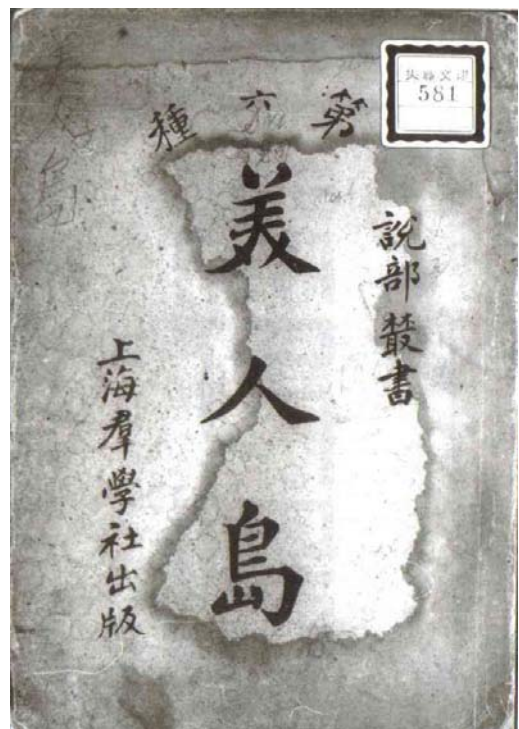 実藤文庫
581
第六種
說部叢書
美人島
上海羣學社出版
美人島